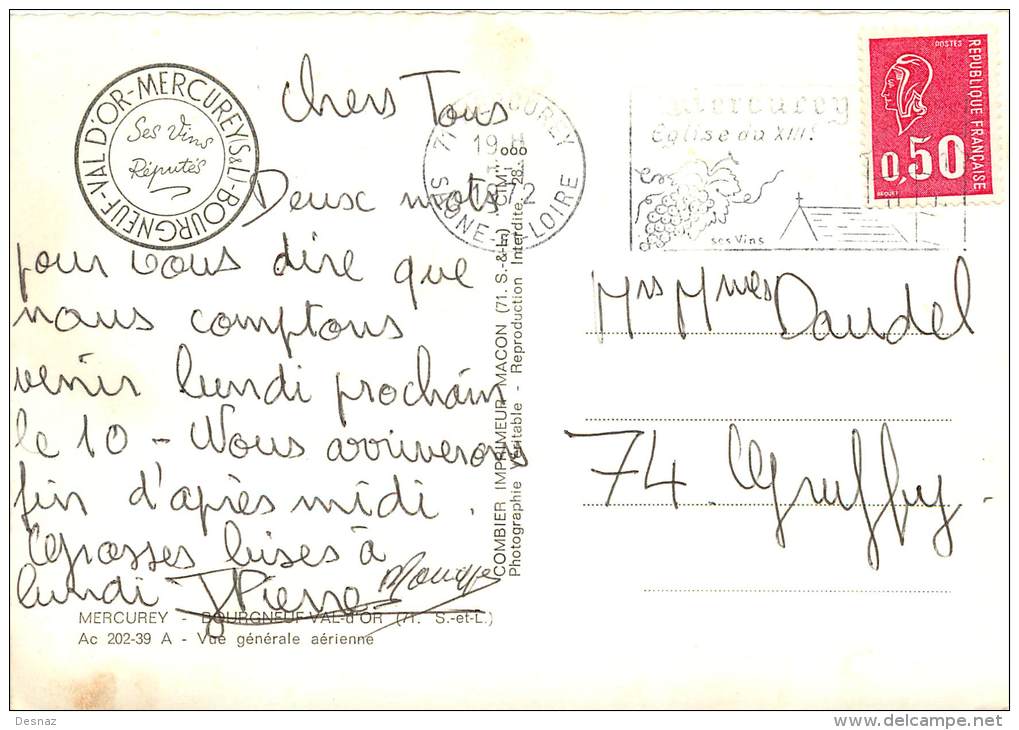 VAL D'OR-MERCUREY(S&L)-BOURGNEUF-
Ses Vins
Réputés
Chers Tous
Deux mots
pour vous dire que
nous comptons
venir lundi prochain
le 10 - Nous arriverons
fin d'après midi.
Grosses bises à
lundi JPierre
MERCUREY - BOURGNEUF-VAL-d'OR (71. S.-et-L.)
Ac 202-39 A - Vue générale aérienne
COMBIER IMPRIMEUR MACON (71. S.-&-L.)
Photographie Véritable - Reproduction Interdite
71 MERCUREY
19H
1972
SAONE-ET-LOIRE
Mercurey
Eglise du XIIIe
ses Vins
POSTES
REPUBLIQUE FRANÇAISE
0,50
BEQUET
Mrs Mmes Daudel
74. Gruffy.
Desnaz
delcampe.net